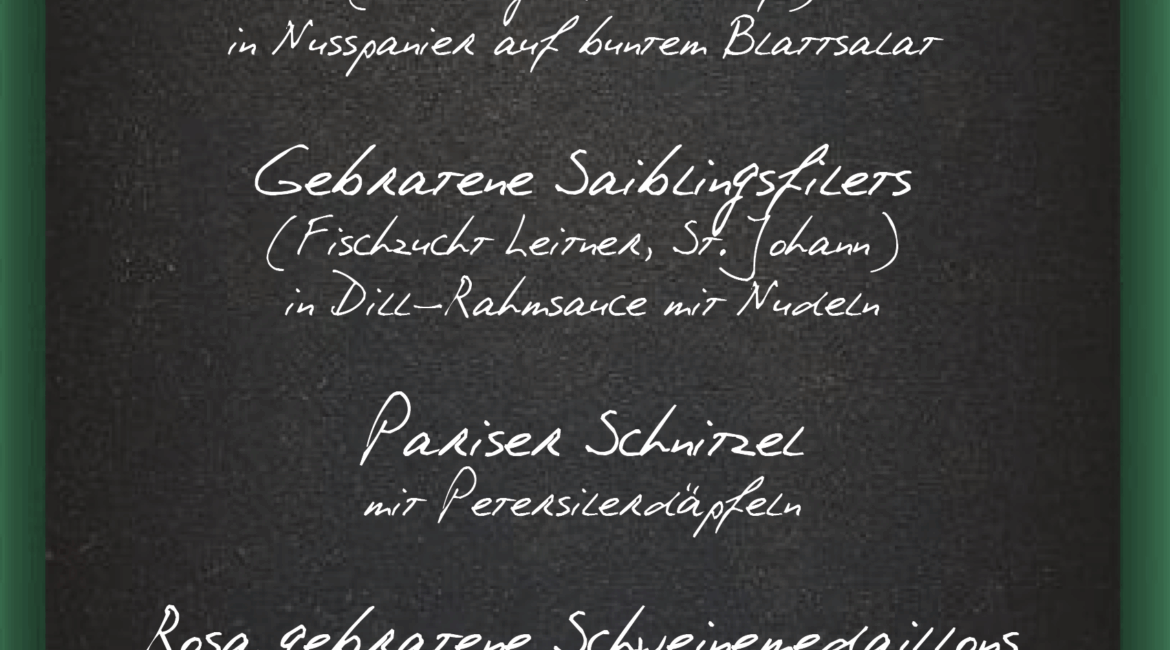 in Nusspanier auf buntem Blattsalat
Gebratene Saiblingsfilets
(Fischzucht Leitner, St. Johann)
in Dill-Rahmsauce mit Nudeln
Pariser Schnitzel
mit Petersilerdäpfeln
Rosa gebratene Schweinemedaillons